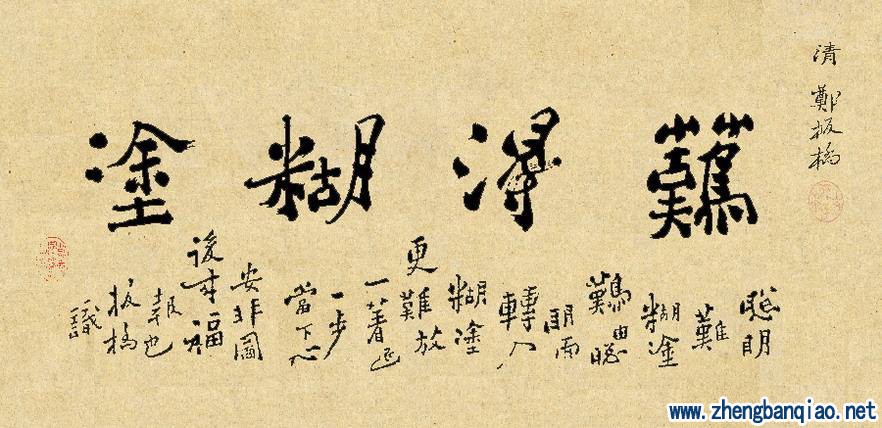 清 鄭板橋
難得糊塗
聰明
難
糊塗
難由聰
明而
轉入
糊塗
更難放
一著退
一步
當下心
安非圖
後來福
報也
板橋
識
www.zhengbanqiao.net